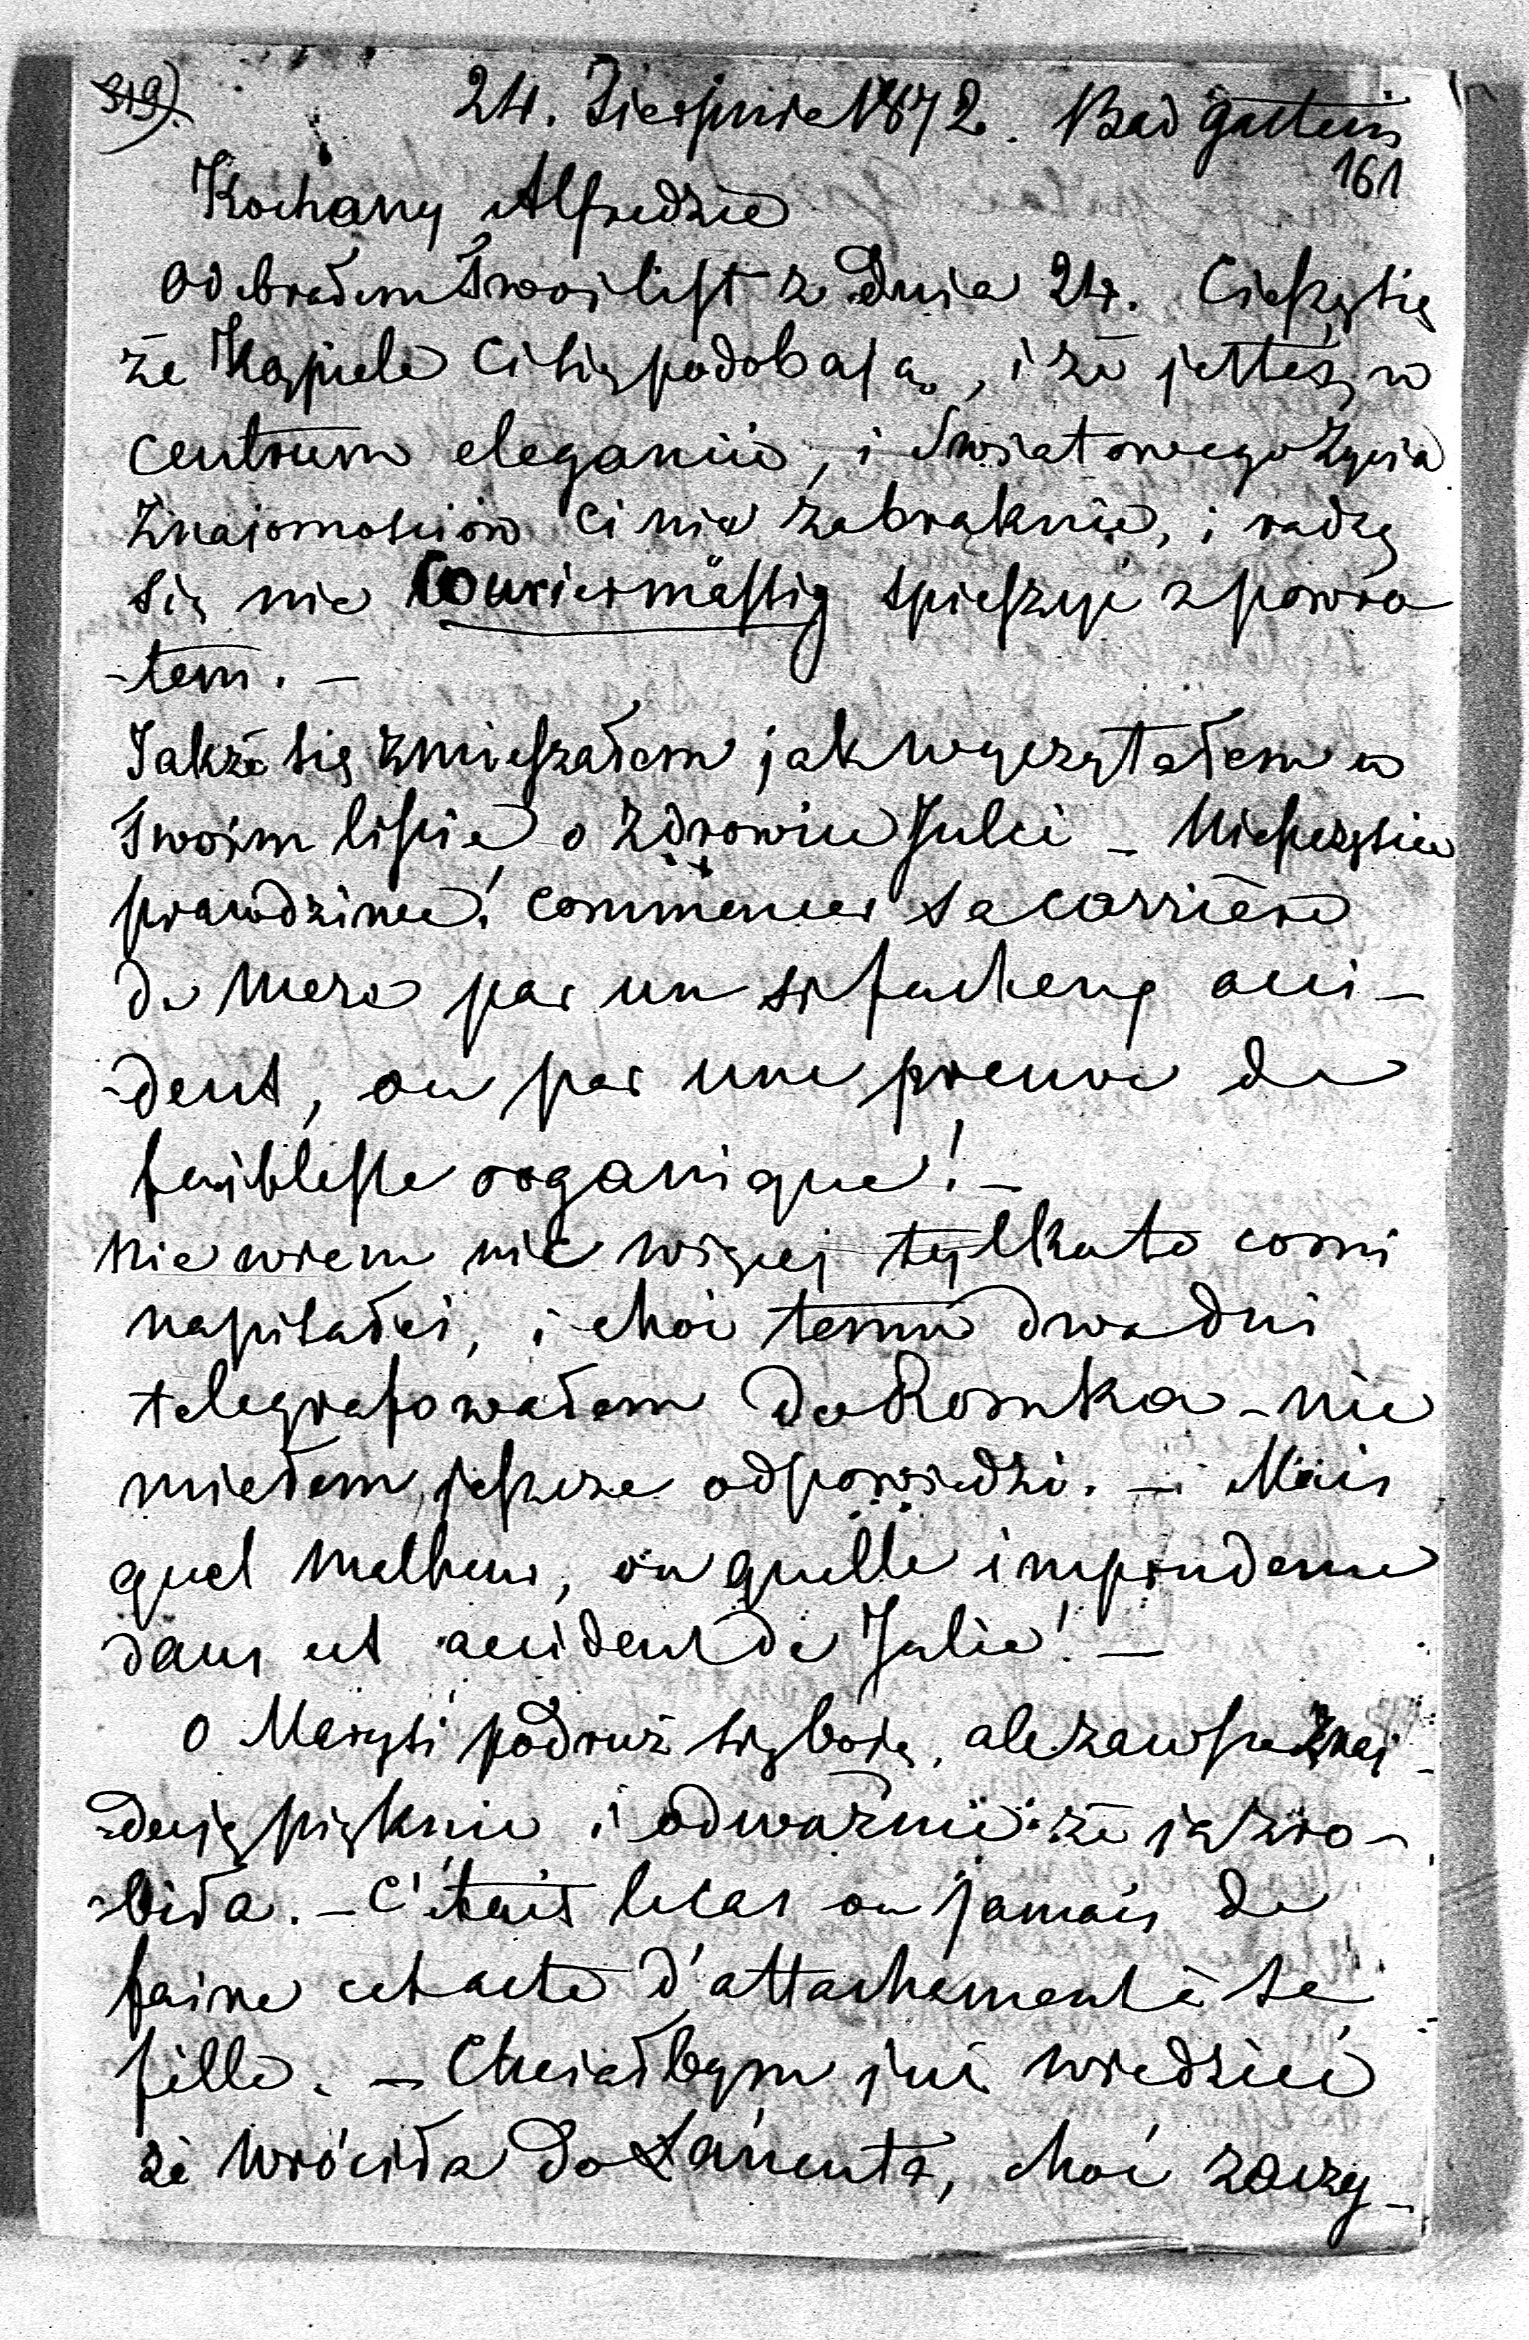 319).
24. Sierpnia 1872. Bad Gastein
161
Kochany Alfredzie
Odebrałem Twoj list z dnia 24. Cieszę się
że Kąpiele Ci się podobają, i że jesteś w
centrum elegancii, i Swiatowego życia
Znajomosciów Ci nie zabraknie, i radzę
się nie Couriermässig spieszyć z powro
-tem. –
Jakże się zmieszałem jak wyczytałem w
Twoim liscie o zdrowiu Julci – Nieszczęscie
prawdziwe! commencer sa carrière
de Mere par un si facheux acci-
-dent, ou par une preuve de
faiblesse organique! –
Nie wiem nic więcej tylko to co mi
napisałeś, i choć temu dwa dni
telegrafowałem do Romka – nie
miałem jeszcze odpowiedzi. – Mais
quel malheur, ou quelle imprudence
dans cet accident de Julie! –
O Marysi podróż się boję, ale zawsze znaj-
-duję pięknie i odważnie że ją zro-
-biła. – C'était le cas ou jamais de
faire cet acte d'attachement à sa
fille. – Chciałbym już wiedzieć
że wróciła do Łańcuta, choć zaczy-